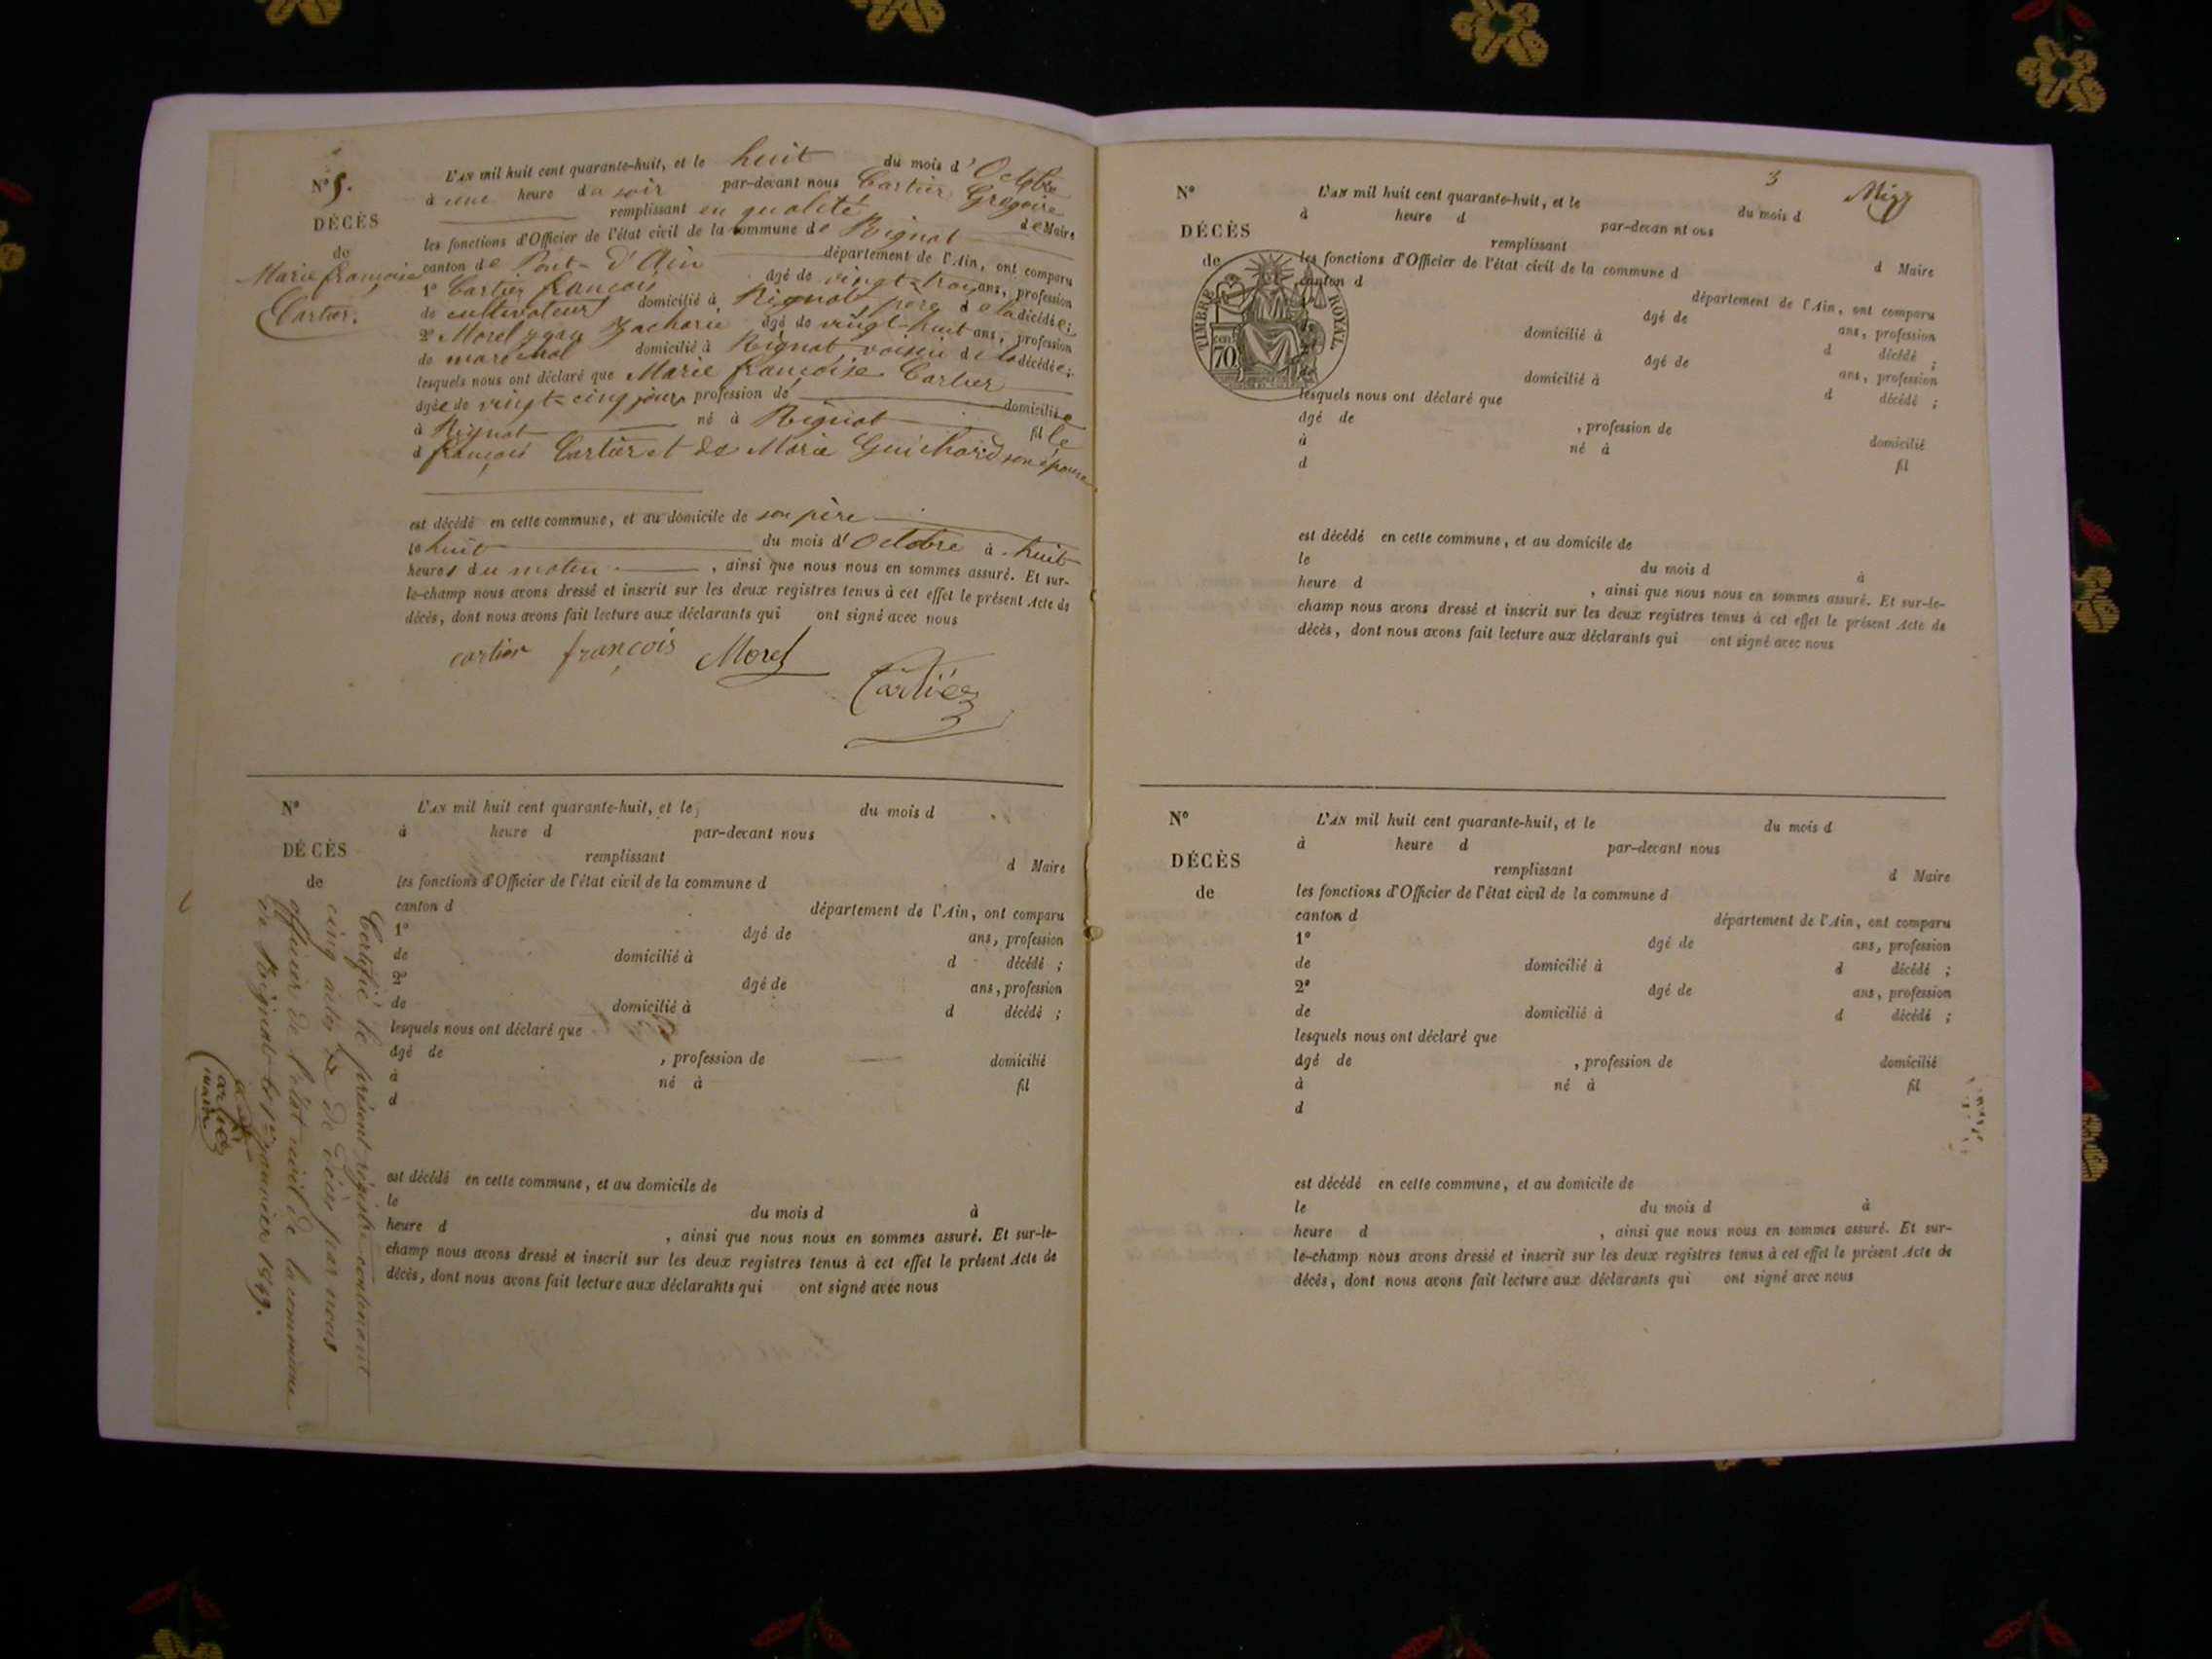 N° 5.
DÉCÈS
de
Marie françoise
Cartier.
L'AN mil huit cent quarante-huit, et le huit du mois d'Octobre
à une heure du soir par-devant nous Cartier Grégoire
remplissant en qualité de Maire
les fonctions d'Officier de l'état civil de la commune de Rignat
canton de Pont-d'Ain département de l'Ain, ont comparu
1° Cartier françois âgé de vingt-trois ans, profession
de cultivateur domicilié à Rignat père de la décédée;
2° Morel Zacharie âgé de vingt-huit ans, profession
de maréchal domicilié à Rignat voisin de la décédée;
lesquels nous ont déclaré que Marie françoise Cartier
âgée de vingt-cinq jours, profession de domiciliée
à Rignat né à Rignat fille
d françois Cartier et de Marie Guichard son épouse
est décédé en cette commune, et au domicile de son père
le huit du mois d'Octobre à huit
heures du matin, ainsi que nous nous en sommes assuré. Et sur-
le-champ nous avons dressé et inscrit sur les deux registres tenus à cet effet le présent Acte de
décès, dont nous avons fait lecture aux déclarants qui ont signé avec nous
cartier françois Morel
Cartier
N°
DÉCÈS
de
L'AN mil huit cent quarante-huit, et le du mois d
à heure d par-devant nous
remplissant d Maire
les fonctions d'Officier de l'état civil de la commune d
canton d département de l'Ain, ont comparu
1° âgé de ans, profession
de domicilié à d décédé ;
2° âgé de ans, profession
de domicilié à d décédé ;
lesquels nous ont déclaré que
âgé de , profession de domicilié
à né à fil
d
est décédé en cette commune, et au domicile de
le du mois d à
heure d , ainsi que nous nous en sommes assuré. Et sur-le-
champ nous avons dressé et inscrit sur les deux registres tenus à cet effet le présent Acte de
décès, dont nous avons fait lecture aux déclarants qui ont signé avec nous
Certifié le présent registre contenant
cinq actes de décès par nous
officier de l'état civil de la commune
de Rignat le 1er janvier 1849.
Cartier
maire
3
N°
DÉCÈS
de
TIMBRE ROYAL
cen.
70
L'AN mil huit cent quarante-huit, et le du mois d
à heure d par-devan nt ous
remplissant d Maire
les fonctions d'Officier de l'état civil de la commune d
canton d département de l'Ain, ont comparu
âgé de ans, profession
domicilié à d décédé ;
âgé de ans, profession
domicilié à d décédé ;
lesquels nous ont déclaré que
âgé de , profession de domicilié
à né à fil
d
est décédé en cette commune, et au domicile de
le du mois d à
heure d , ainsi que nous nous en sommes assuré. Et sur-le-
champ nous avons dressé et inscrit sur les deux registres tenus à cet effet le présent Acte de
décès, dont nous avons fait lecture aux déclarants qui ont signé avec nous
N°
DÉCÈS
de
L'AN mil huit cent quarante-huit, et le du mois d
à heure d par-devant nous
remplissant d Maire
les fonctions d'Officier de l'état civil de la commune d
canton d département de l'Ain, ont comparu
1° âgé de ans, profession
de domicilié à d décédé ;
2° âgé de ans, profession
de domicilié à d décédé ;
lesquels nous ont déclaré que
âgé de , profession de domicilié
à né à fil
d
est décédé en cette commune, et au domicile de
le du mois d à
heure d , ainsi que nous nous en sommes assuré. Et sur-
le-champ nous avons dressé et inscrit sur les deux registres tenus à cet effet le présent Acte de
décès, dont nous avons fait lecture aux déclarants qui ont signé avec nous